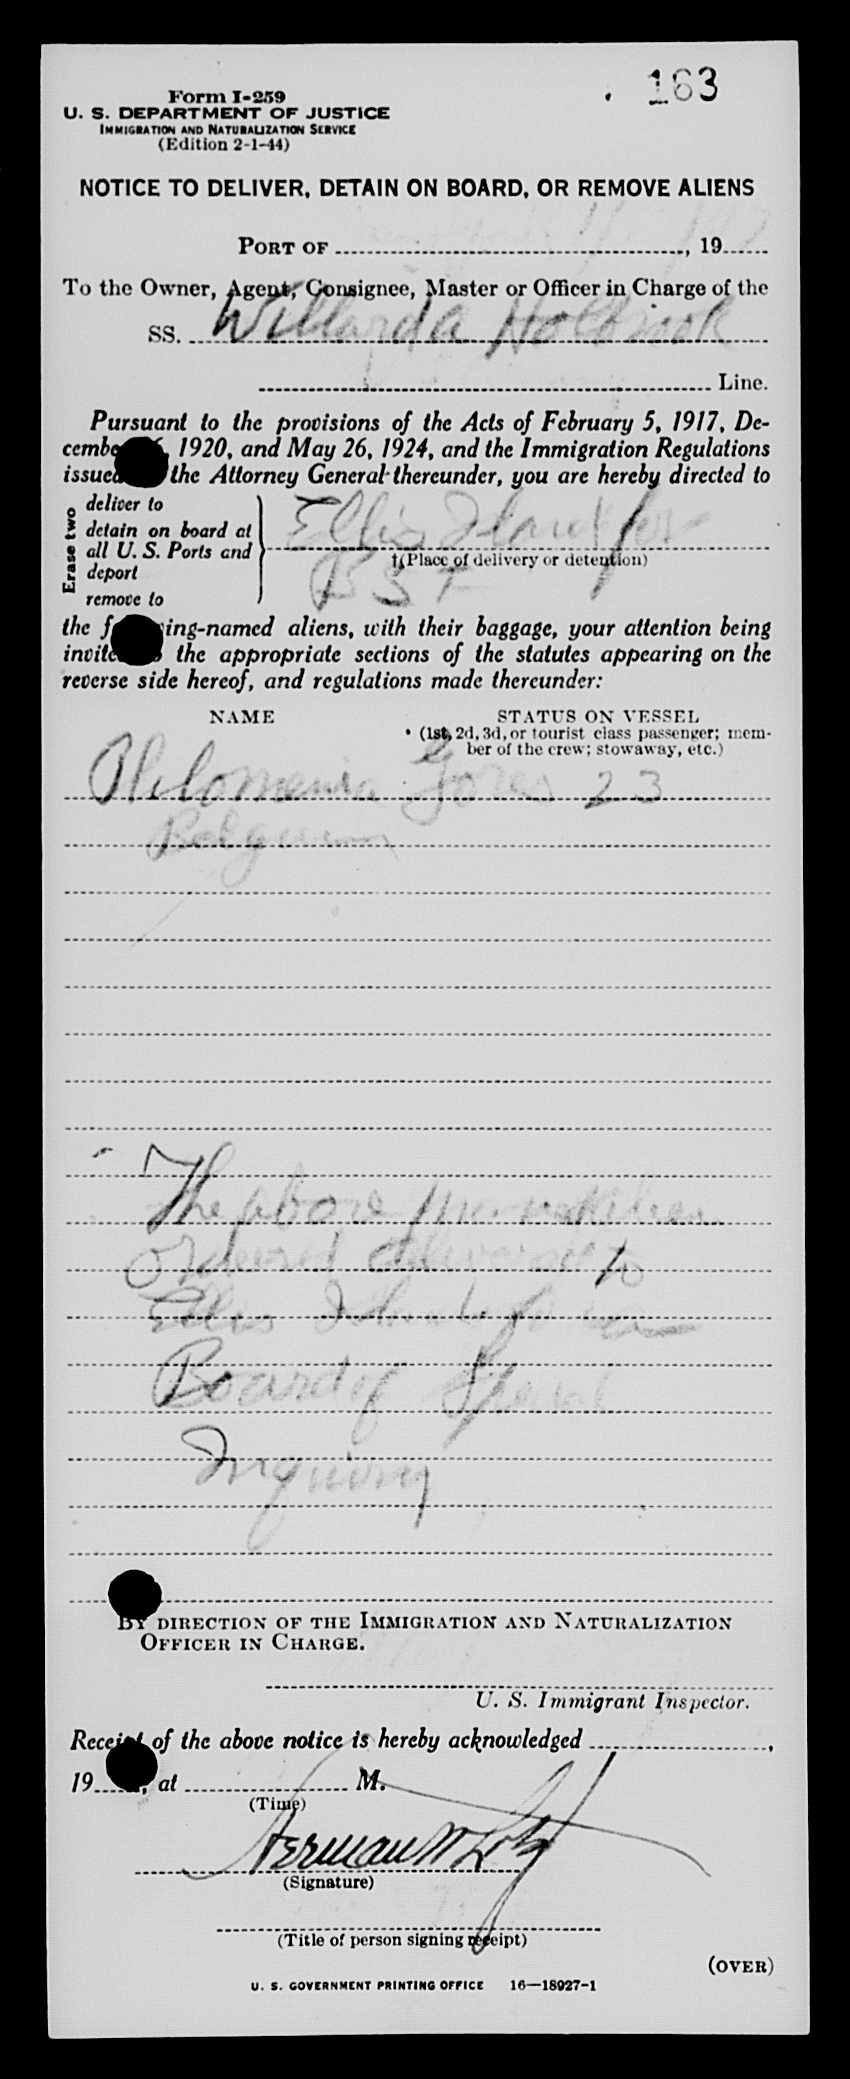 163
Form I-259
U. S. DEPARTMENT OF JUSTICE
IMMIGRATION AND NATURALIZATION SERVICE
(Edition 2-1-44)
NOTICE TO DELIVER, DETAIN ON BOARD, OR REMOVE ALIENS
PORT OF , 19
To the Owner, Agent, Consignee, Master or Officer in Charge of the
SS. Willard A Holbrook
Line.
Pursuant to the provisions of the Acts of February 5, 1917, De-
cembe 6, 1920, and May 26, 1924, and the Immigration Regulations
issued the Attorney General thereunder, you are hereby directed to
Erase two
deliver to
detain on board at
all U. S. Ports and
deport
remove to
Ellis Island for
†(Place of delivery or detention)
B S I
the f ing-named aliens, with their baggage, your attention being
invite the appropriate sections of the statutes appearing on the
reverse side hereof, and regulations made thereunder:
NAME STATUS ON VESSEL
(1st, 2d, 3d, or tourist class passenger; mem-
ber of the crew; stowaway, etc.)
23
The above
ordered delivered to
Ellis Island for
Board of Special
Inquiry
BY DIRECTION OF THE IMMIGRATION AND NATURALIZATION
OFFICER IN CHARGE.
U. S. Immigrant Inspector.
Receipt of the above notice is hereby acknowledged ,
19 , at M.
(Time)
Herman W
(Signature)
(Title of person signing receipt)
(OVER)
U. S. GOVERNMENT PRINTING OFFICE 16—18927-1